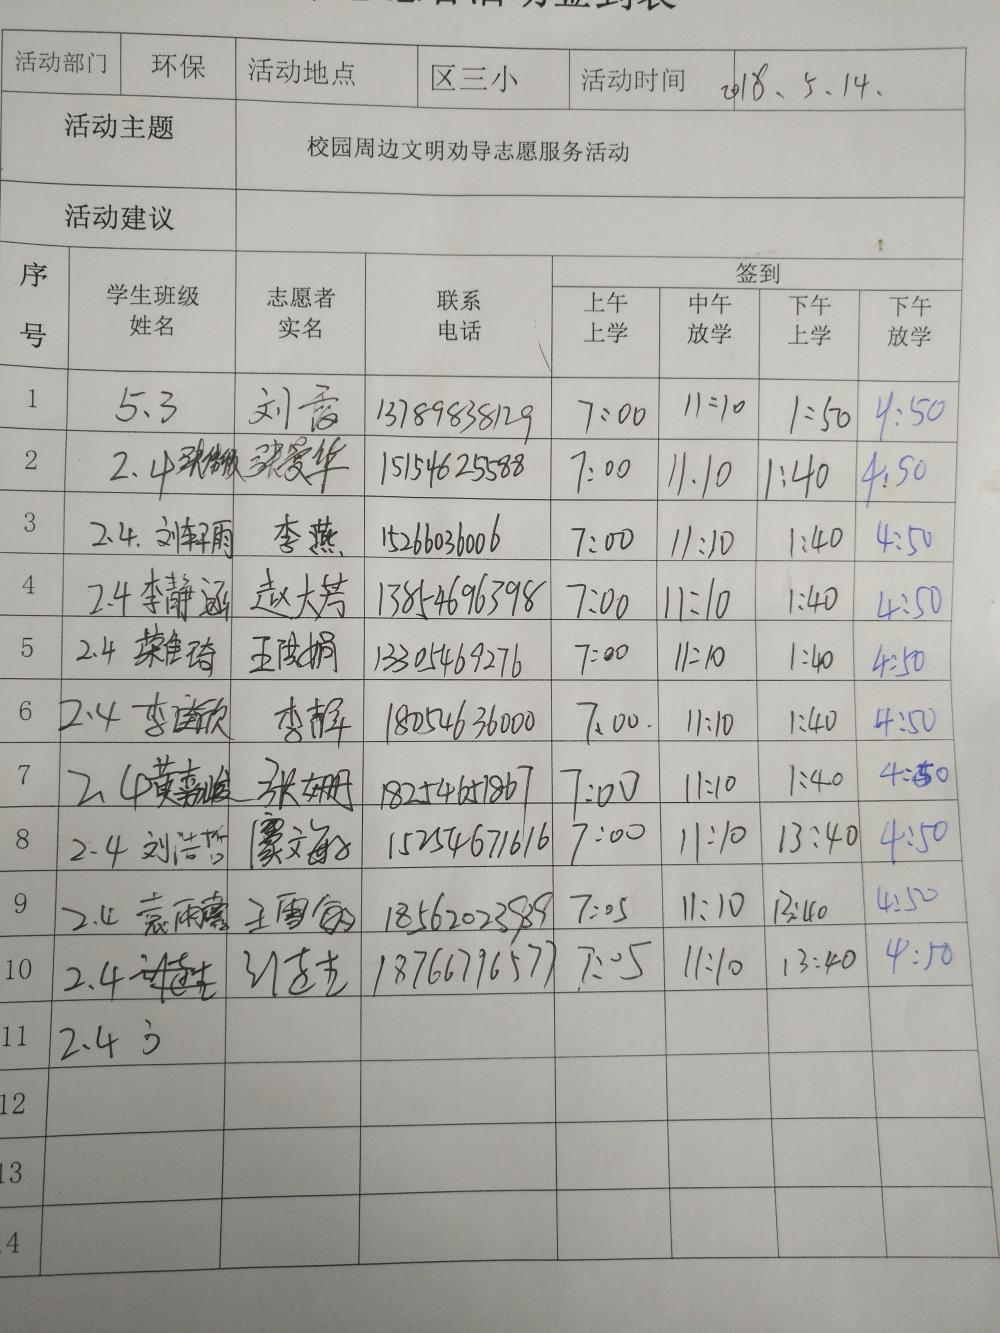 活动签到表
活动部门 环保 活动地点 区三小 活动时间 2018、5、14.
活动主题 校园周边文明劝导志愿服务活动
活动建议
序号 学生班级姓名 志愿者实名 联系电话 签到
上午上学 中午放学 下午上学 下午放学
1 5.3 刘霞 13789838129 7:00 11:10 1:50 4:50
2 2.4 张爱华 15154625588 7:00 11.10 1:40 4:50
3 2.4. 刘轩雨 李燕 15266036006 7:00 11:10 1:40 4:50
4 2.4 李静涵 赵大芳 13854696398 7:00 11:10 1:40 4:50
5 2.4 王洪娟 13305469276 7:00 11:10 1:40 4:50
6 2.4 李 李静 18054636000 7:00. 11:10 1:40 4:50
7 2.4 黄嘉骏 张姗 18254651867 7:00 11:10 1:40 4:50
8 2.4 刘浩哲 文海 15254671616 7:00 11:10 13:40 4:50
9 2.4 袁雨 王雪 18562023939 7:05 11:10 13:40 4:50
10 2.4 18766796577 7:05 11:10 13:40 4:50
11 2.4
12
13
14